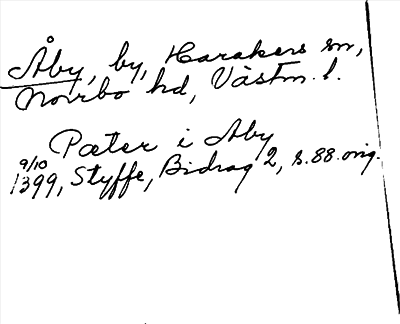 Åby, by, Harakers sn,
Norrbo hd, Västm. l.
Pæter i Aby
9/10 1399, Styffe, Bidrag 2, s. 88. orig.